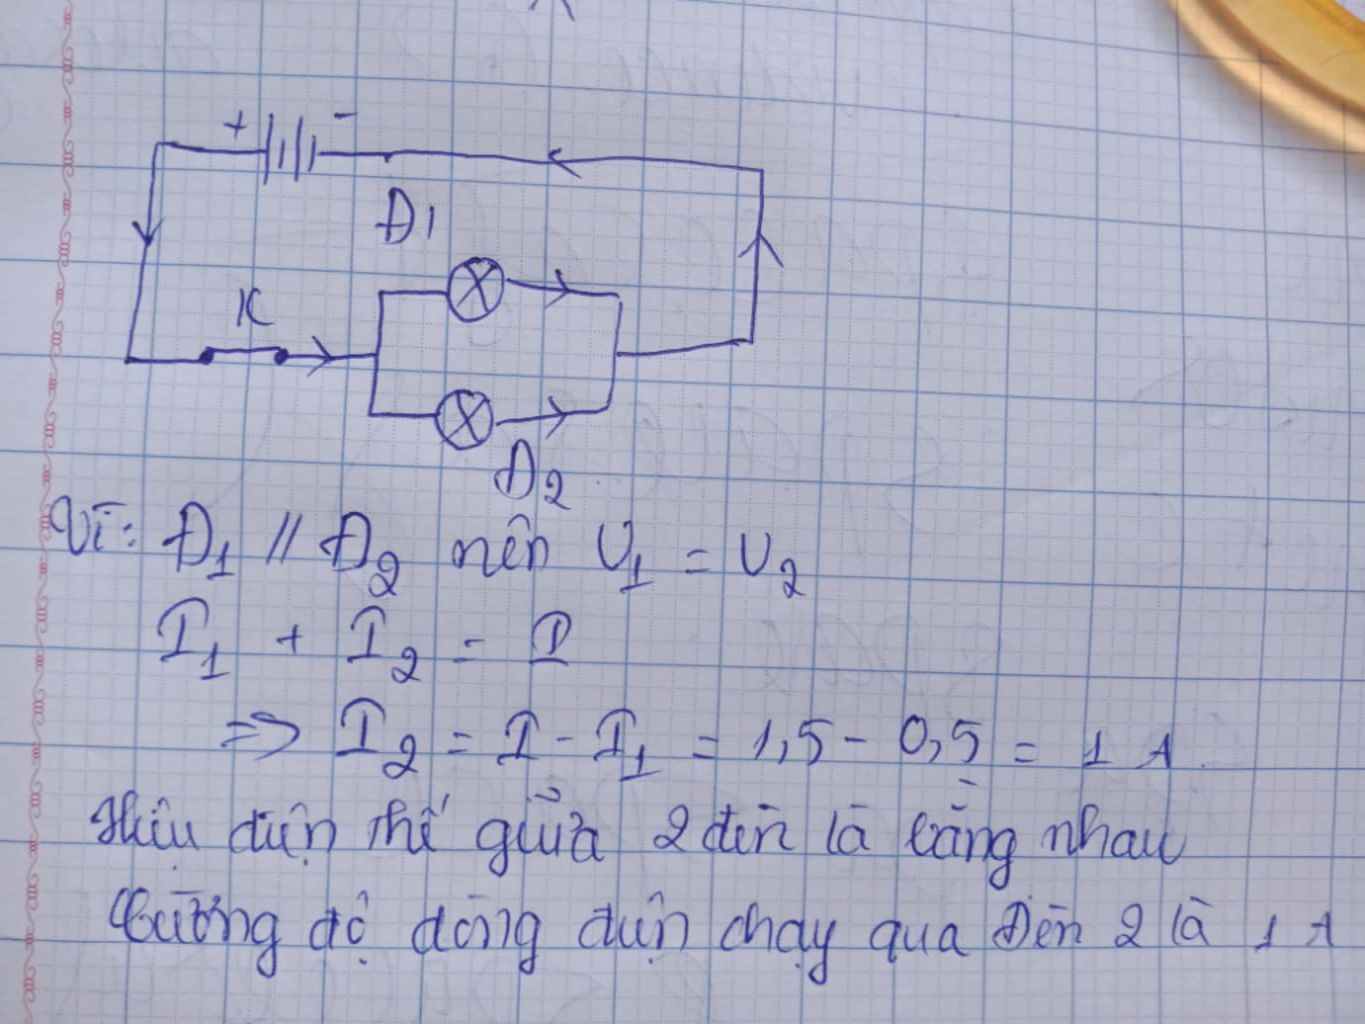 + -
Đ1
K
Đ2
Vì: Đ1 // Đ2 nên U1 = U2
I1 + I2 = I
=> I2 = I - I1 = 1,5 - 0,5 = 1 A.
Hiệu điện thế giữa 2 đèn là bằng nhau
Cường độ dòng điện chạy qua Đèn 2 là 1 A